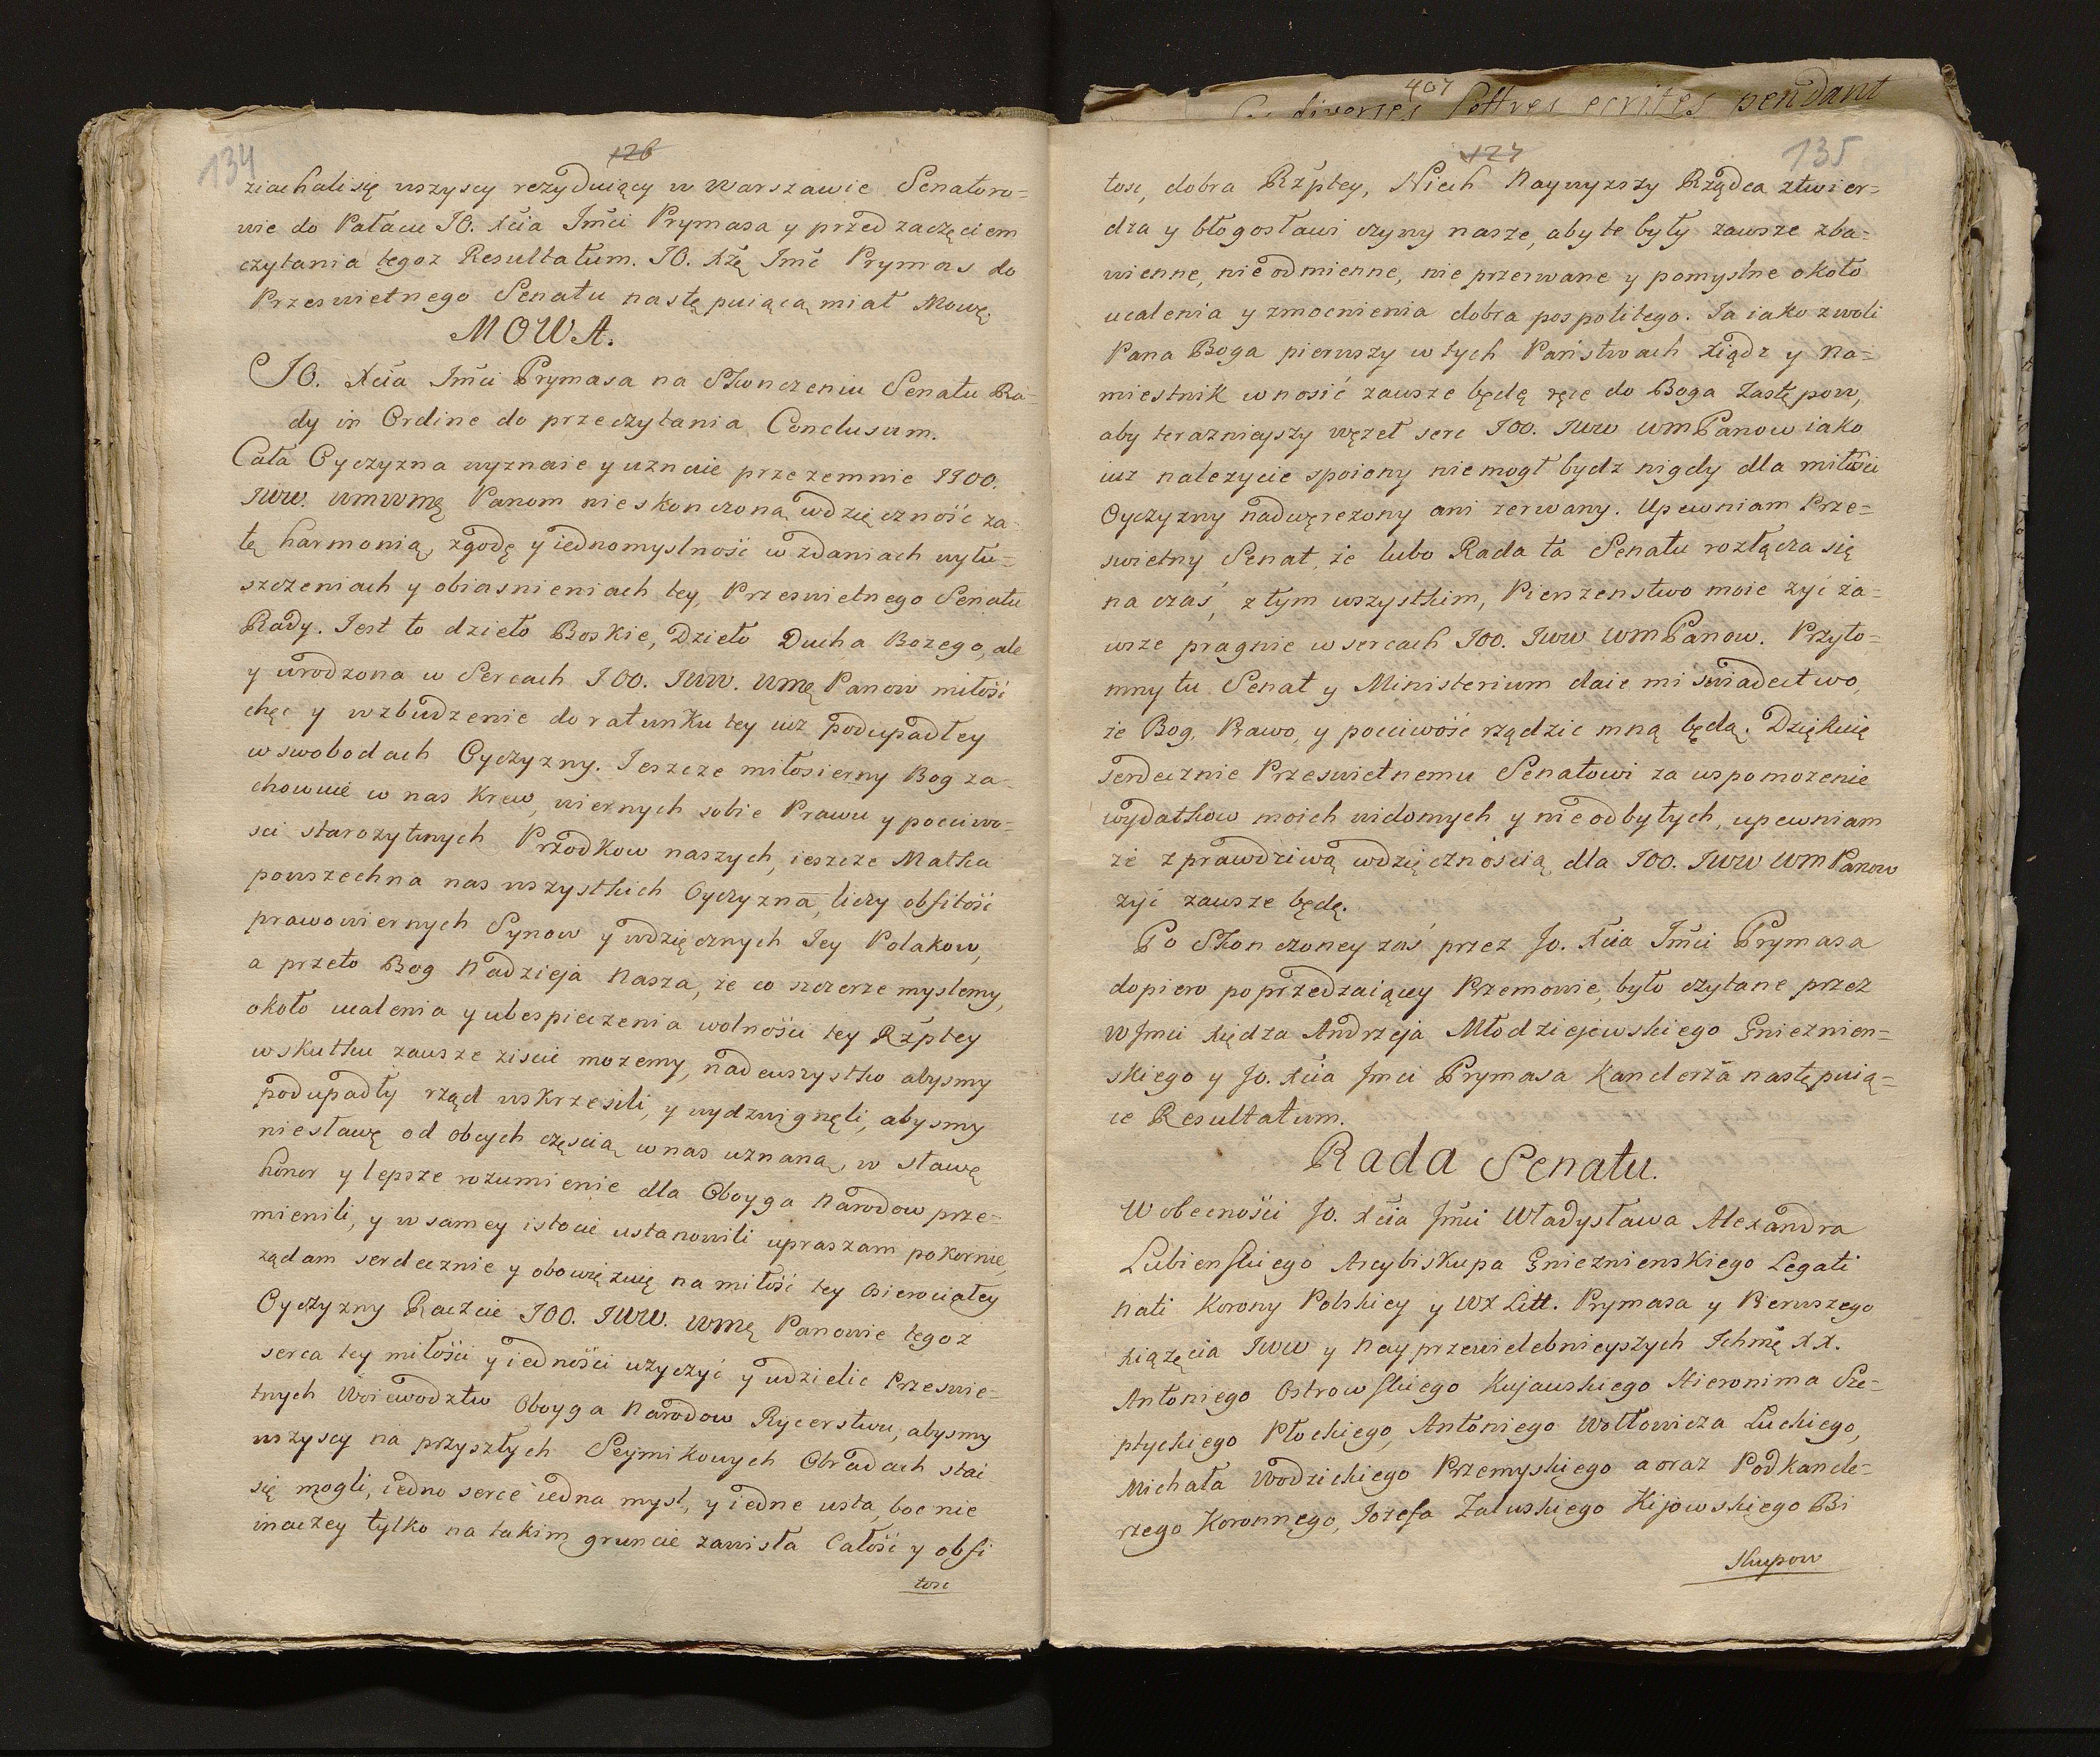 134
126
ziachali się wszyscy rezydujący w Warszawie Senatoro=
wie do Pałacu JO. Xcia Jmci Prymasa y przed zaczęciem
czytania tegoz Resultatum. JO. Xżę Jmć Prymas do
Przeswietnego Senatu następuiącą miał Mowę.
MOWA.
JO. Xcia Jmci Prymasa na Skonczeniu Senatu Ra=
dy in Ordine do przeczytania Conclusum.
Cała Oyczyzna wyznaie y uznaie przezemnie JJOO.
JWW. WMWMę Panom nieskonczoną wdzięczność za
tę harmonią, zgodę y iednomyslność w zdaniach wytu=
szczeniach y obiasnieniach tey, Przeswietnego Senatu
Rady. Jest to dzieło Boskie, Dzieło Ducha Bozego, ale
y urodzona w Sercach JOO. JWW. WMę Panow miłość
chęc y wzbudzenie do ratunku tey iuz podupadłey
w swobodach Oyczyzny. Jeszcze miłosierny Bog za=
chowuie w nas Krew, wiernych sobie Prawu y pocciwo=
sci starozytnych Przodkow naszych, ieszcze Matka
powszechna nas wszystkich Oyczyzna, liczy obfitość
prawowiernych Synow y wdzięcznych Jey Polakow,
a przeto Bog Nadzieja Nasza, że co szczerze myslemy,
około ucalenia y ubespieczenia wolności tey Rzptey
w skutku zausze ziscic mozemy, nadewszystko abysmy
podupadły rząd wskrzesili, y wydzwignęli, abysmy
niesławę od obcych częscią w nas uznaną, w sławę
honor y lepsze rozumienie dla Oboyga Narodow prze=
mienili, y w samey istocie ustanowili upraszam pokornie,
ządam serdecznie y obowięzuię na miłość tey osierociałey
Oyczyzny Raczcie JOO. JWW. WMę Panowie tegoż
serca tey miłości y iedności uzyczyć y udzielic Przeswie=
tnych Woiewodztw Oboyga Narodow Rycerstwu, abysmy
wszyscy na przyszłych Seymikowych Obradach stai
się mogli, iedno serce iedna mysl, y iedne usta, boc nie
inaczey tylko na takim gruncie zawisła Całość y obfi
tosc
407
diverses Lettres ecrites pendant
127
135
tosc, dobra Rzptey, Niech Naywyzszy Rządca ztwier=
dza y błogosławi czyny nasze, aby te były zawsze zba=
wienne, nieodmienne, nieprzerwane y pomyslne około
ucalenia y zmocnienia dobra pospolitego. Ja iako z woli
Pana Boga pierwszy w tych Państwach Xiądz y Na=
miestnik wnosić zawsze będę ręce do Boga Zastępow,
aby teraznieyszy węzeł serc JOO. JWW WMPanow iako
iuz nalezycie spoiony niemogł bydz nigdy dla miłości
Oyczyzny nadwęręzony ani zerwany. Upewniam Prze=
swietny Senat, że lubo Rada ta Senatu rozłącza się
na czas, z tym wszystkim, Pierszenstwo moie zyć za=
wsze pragnie w sercach JOO. JWW WMPanow. Przyto=
mny tu Senat y Ministerium daie mi swiadectwo,
że Bog, Prawo, y pocciwość rządzic mną będą. Dziękuię
serdecznie Przeswietnemu Senatowi za wspomozenie
wydatkow moich widomych y nieodbytych, upewniam
ze z prawdziwą wdzięcznoscią dla JOO. JWW WMPanow
zyć zausze będę.
Po Skonczoney zaś przez Jo. Xcia Jmci Prymasa
dopiero poprzedzaiącey Przemowie, było czytane przez
WJmci Xiędza Andrzeja Młodziejewskiego Gnieznien=
skiego y Jo. Xcia Jmci Prymasa Kanclerza następuią=
ce Resultatum.
Rada Senatu.
W obecności Jo. Xcia Jmci Władysława Alexandra
Lubienskiego Arcybiskupa Gnieznienskiego Legati
Nati Korony Polskiey y WX Litt. Prymasa y Pierwszego
Xiązęcia JWW y Nayprzewielebnieyszych Ichmę XX.
Antoniego Ostrowskiego Kujawskiego Hieronima Sze=
ptyckiego Płockiego, Antoniego Wołłowicza Luckiego,
Michała Wodzickiego Przemyskiego a oraz Podkancle=
rzego Koronnego, Jozefa Załuskiego Kijowskiego Bi
skupow